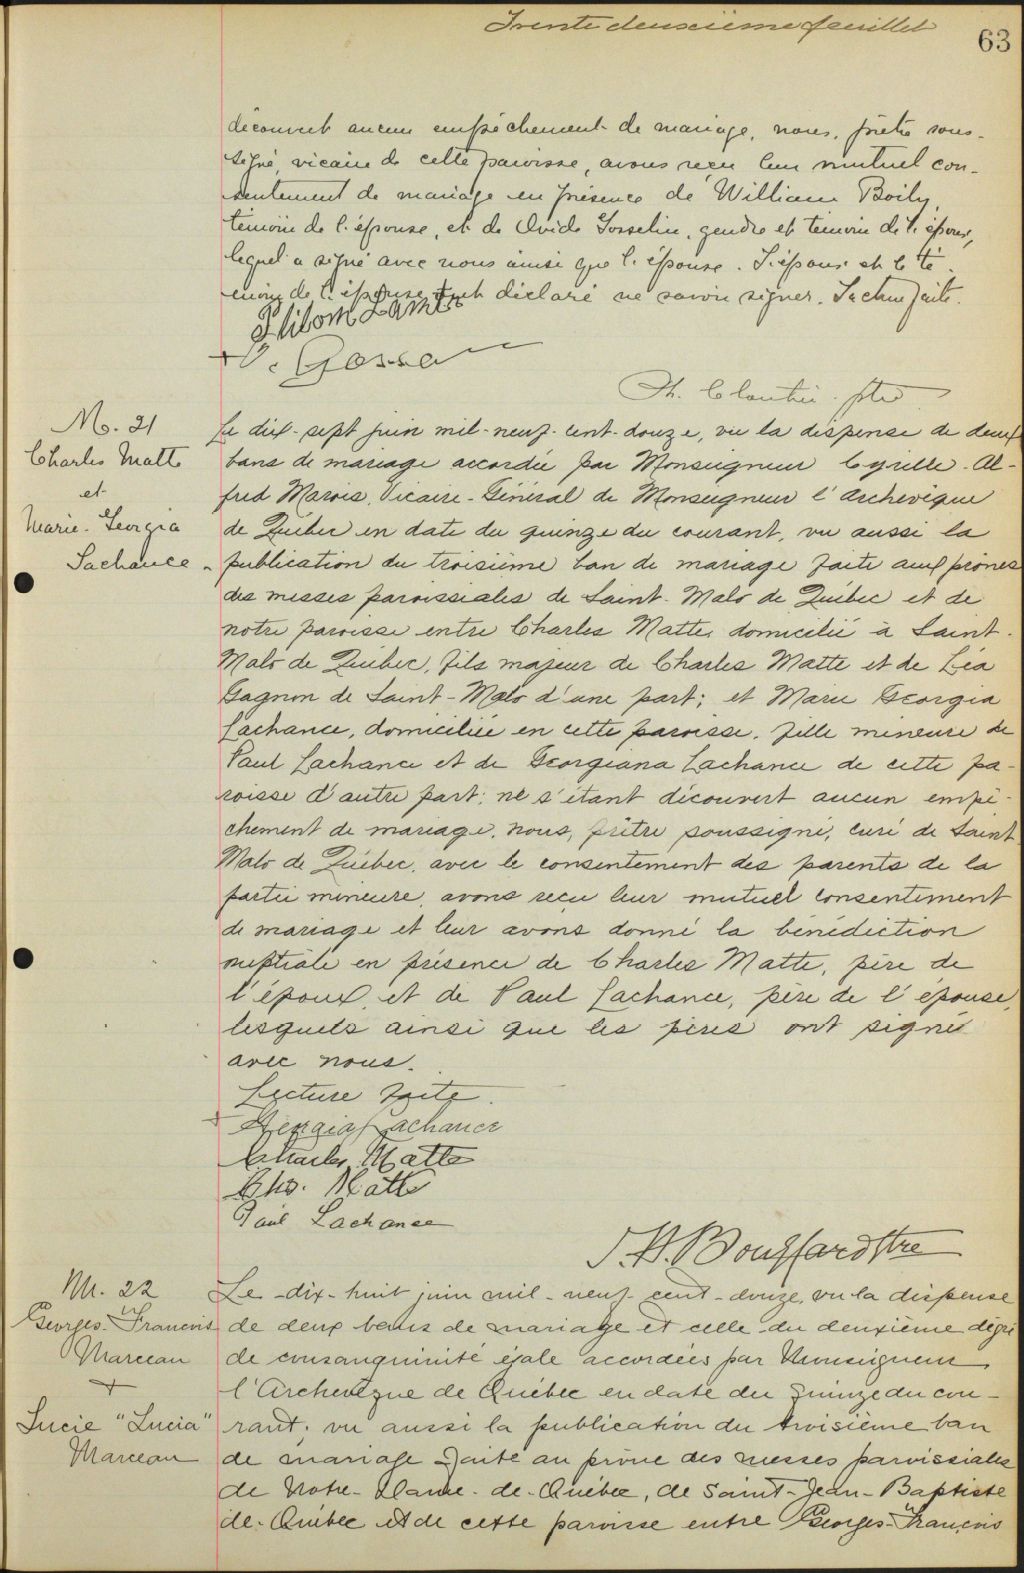 Trente deuxième feuillet
63
découvert aucun empêchement de mariage, nous, prêtre sous-
signé, vicaire de cette paroisse, avons reçu leur mutuel con-
sentement de mariage en présence de William Boily,
témoin de l'épouse, et de Ovide Gosselin, gendre et témoin de l'époux,
lequel a signé avec nous ainsi que l'épouse. L'époux et le té-
moin de l'épouse ont déclaré ne savoir signer. Lecture faite.
+ O. Gosselin
Th. Cloutier ptre
M. 21
Charles Matte
et
Marie-Georgia
Lachance
Le dix-sept juin mil-neuf-cent-douze, vu la dispense de deux
bans de mariage accordée par Monseigneur Cyrille-Al-
fred Marois, Vicaire-Général de Monseigneur l'archevêque
de Québec en date du quinze du courant, vu aussi la
publication du troisième ban de mariage faite aux prônes
des messes paroissiales de Saint-Malo de Québec et de
notre paroisse entre Charles Matte, domicilié à Saint-
Malo de Québec, fils majeur de Charles Matte et de Léa
Gagnon de Saint-Malo d'une part; et Marie Georgia
Lachance, domiciliée en cette paroisse, fille mineure de
Paul Lachance et de Georgiana Lachance de cette pa-
roisse d'autre part; ne s'étant découvert aucun empê-
chement de mariage, nous, prêtre soussigné, curé de Saint
Malo de Québec, avec le consentement des parents de la
partie mineure, avons reçu leur mutuel consentement
de mariage et leur avons donné la bénédiction
nuptiale en présence de Charles Matte, père de
l'époux, et de Paul Lachance, père de l'épouse,
lesquels ainsi que les pères ont signé
avec nous.
Lecture faite.
+ Georgia Lachance
Charles Matte
Chs. Matte
Paul Lachance
J. H. Bouffard Ptre
M. 22
Georges-François
Marceau
+
Lucie "Lucia"
Marceau
Le dix-huit juin mil-neuf-cent-douze, vu la dispense
de deux bans de mariage et celle du deuxième degré
de consanguinité égale accordées par Monseigneur
l'Archevêque de Québec en date du quinze du cou-
rant; vu aussi la publication du troisième ban
de mariage faite au prône des messes paroissiales
de Notre-Dame-de-Québec, de Saint-Jean-Baptiste
de-Québec et de cette paroisse entre Georges-François